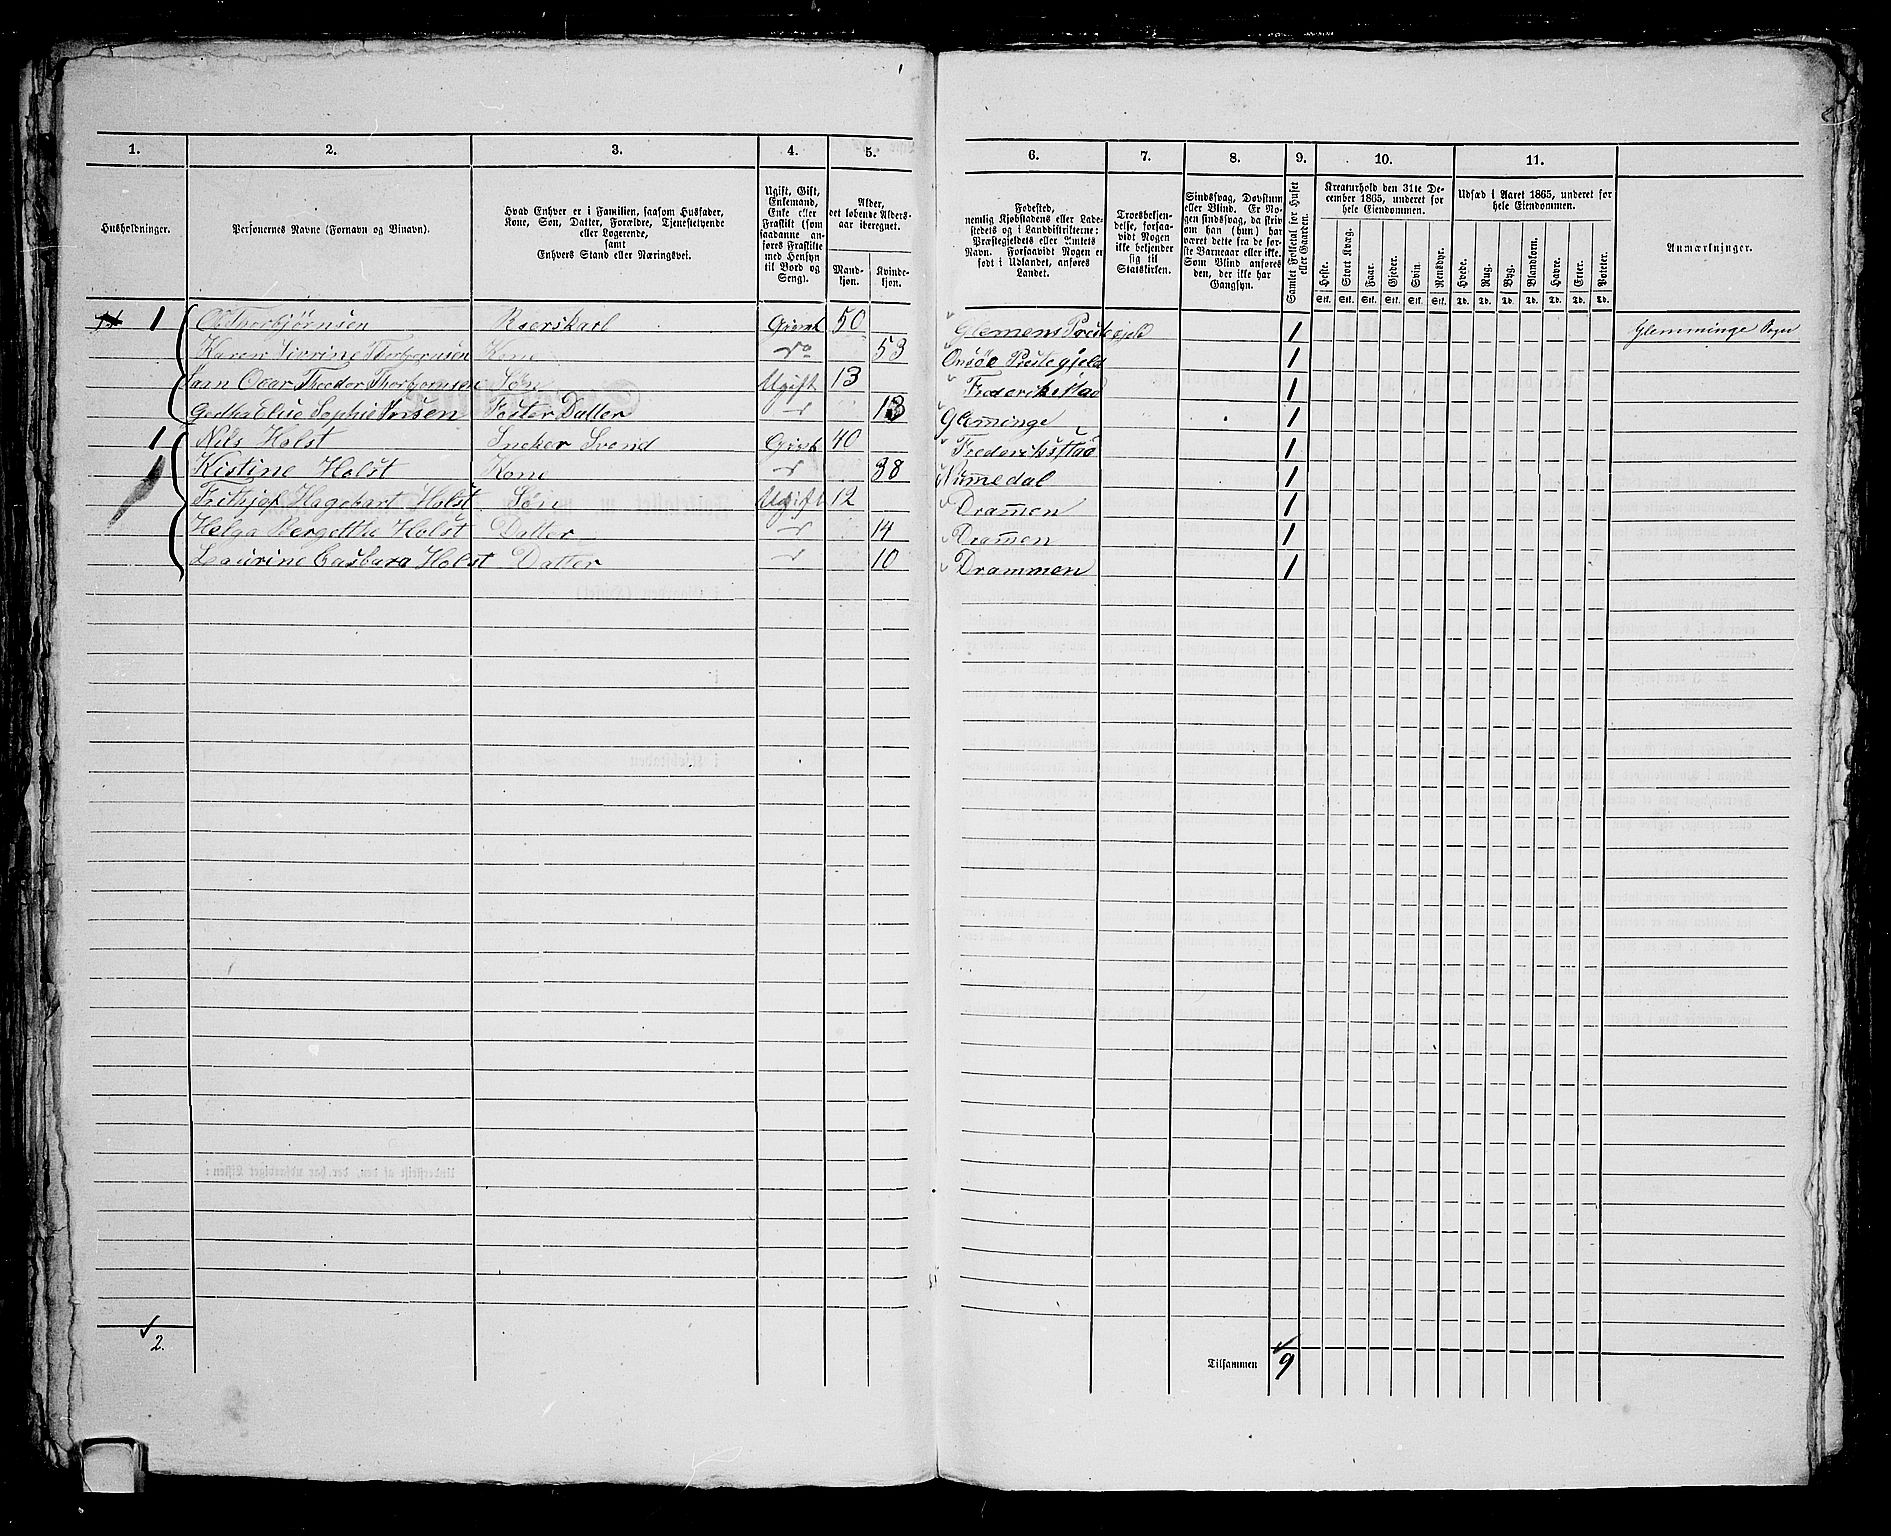 1. 2. 3. 4. 5. 6. 7. 8. 9. 10. 11.
Husholdninger.
Personernes Navne (Fornavn og Binavn).
Hvad Enhver er i Familien, saasom Husfader,
Kone, Søn, Datter, Forældre, Tjenestetyende
eller Logerende,
samt
Enhvers Stand eller Næringsvei.
Ugift, Gift,
Enkemand,
Enke eller
Fraskilt (som
saadanne an-
føres Fraskilte
med Hensyn
til Bord og
Seng).
Alder,
det løbende Alders-
aar iberegnet.
Mand-
kjøn.
Kvinde-
kjøn.
Fødested,
nemlig Kjøbstadens eller Lade-
stedets og i Landdistrikterne:
Præstegjeldets eller Amtets
Navn. Forsaavidt Nogen er
født i Udlandet, anføres
Landet.
Troesbekjen-
delse, forsaa-
vidt Nogen
ikke bekjender
sig til
Statskirken.
Sindssvag, Døvstum
eller Blind. Er No-
gen sindssvag, da skriv
om han (hun) har
været dette fra de før-
ste Barneaar eller ikke.
Som Blind anføres
den, der ikke har
Gangsyn.
Samlet Folketal for Huset
eller Gaarden.
Kreaturhold den 31te De-
cember 1865, underet for
hele Eiendommen.
Heste. Stort Kvæg. Faar. Gjeder. Svin. Rensdyr.
Stk. Stk. Stk. Stk. Stk. Stk.
Udsæd i Aaret 1865, underet for
hele Eiendommen.
Hvede. Rug. Byg. Blandkorn. Havre. Erter. Poteter.
Td. Td. Td. Td. Td. Td. Td.
Anmærkninger.
1 Thorbjørnsen 50 Glemens Prestegjeld 1 Glemminge
Karen Sivrine Thorbjørnsen Kone do 53 Onsøe Prestegjeld 1
Oscar Theodor Søn Ugift 13 Frederikstad 1
Elise Sophie Foster Datter 13 Glem̄inge 1
1 Nils Holst Sneker Svend 40 Frederikstad 1
Kistine Holst Kone 38 1
Frithjof Hagebart Holst Søn Ugift 12 Dram̄en 1
Helga Bergette Holst Datter 14 Dram̄en 1
Laurine Holst Datter 10 Drammen 1
2.
Tilsammen 9